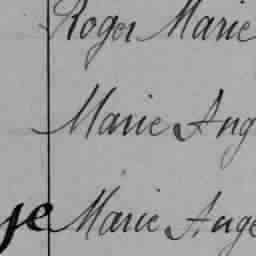 Roger Marie
Marie Ang
ye Marie Ange